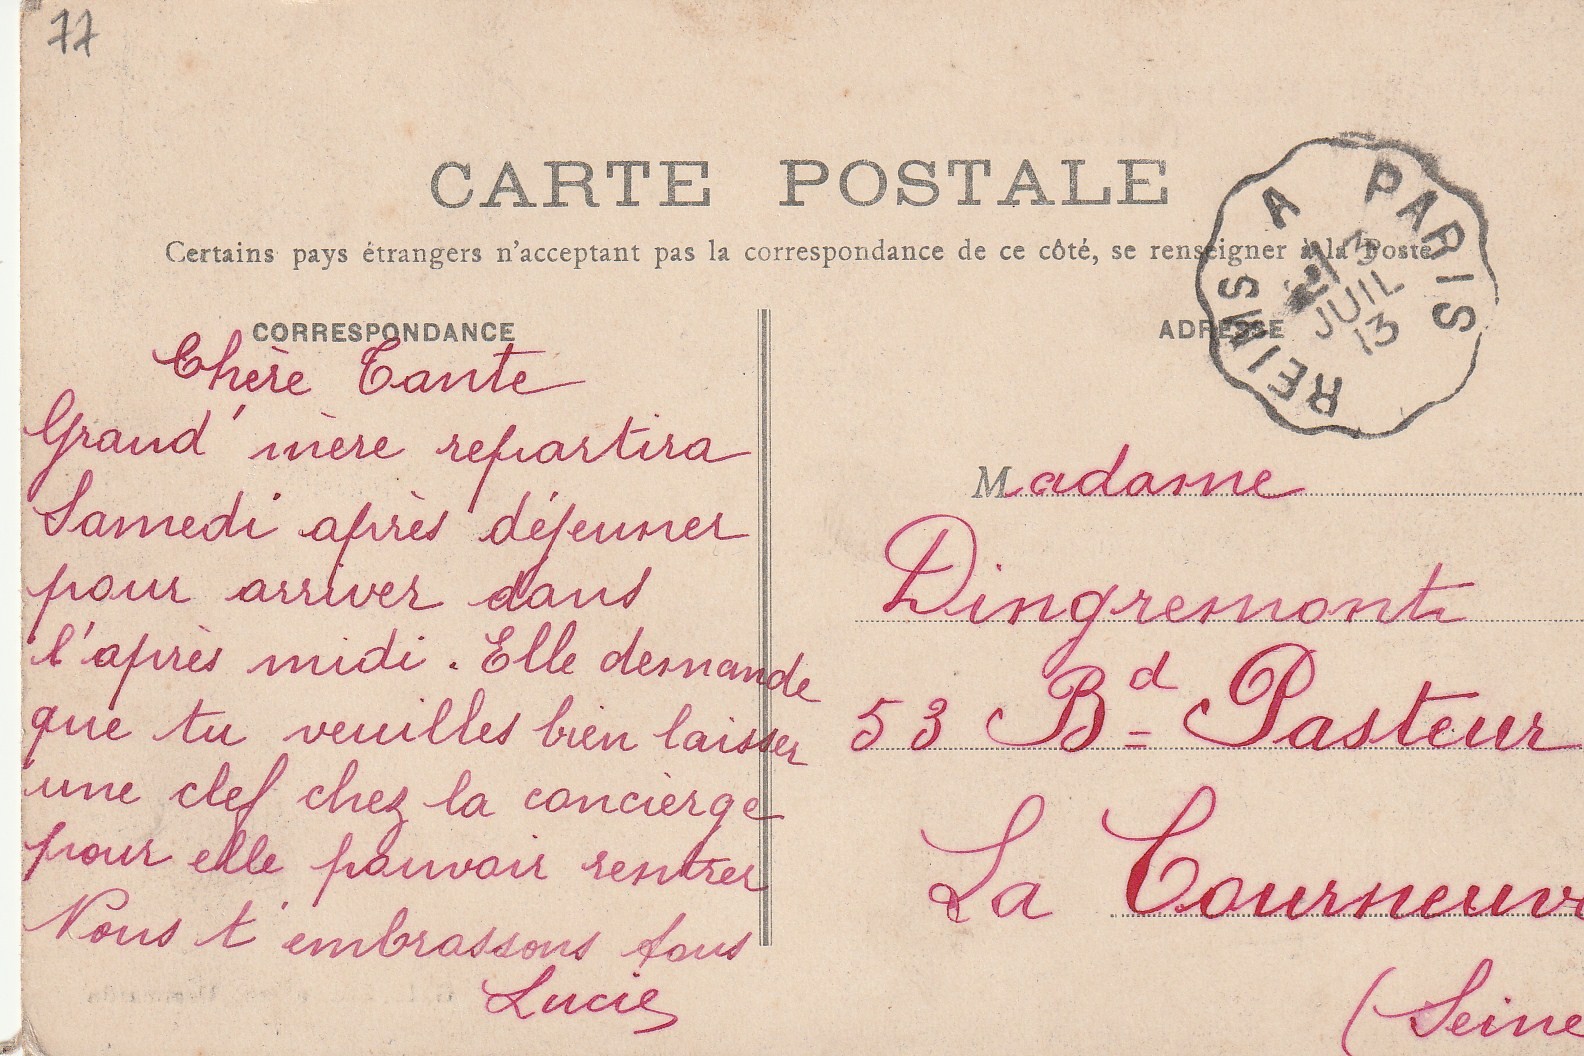 77
CARTE POSTALE
Certains pays étrangers n'acceptant pas la correspondance de ce côté, se renseigner à la Poste
CORRESPONDANCE
Chère Tante
Grand'mère repartira
Samedi après déjeuner
pour arriver dans
l'après midi. Elle demande
que tu veuilles bien laisser
une clef chez la concierge
pour elle pouvoir rentrer
Nous t'embrassons tous
Lucie
ADRESSE
REIMS A PARIS
3
JUIL
13
Madame
Dingremont
53 Bd Pasteur
La Courneuve
(Seine